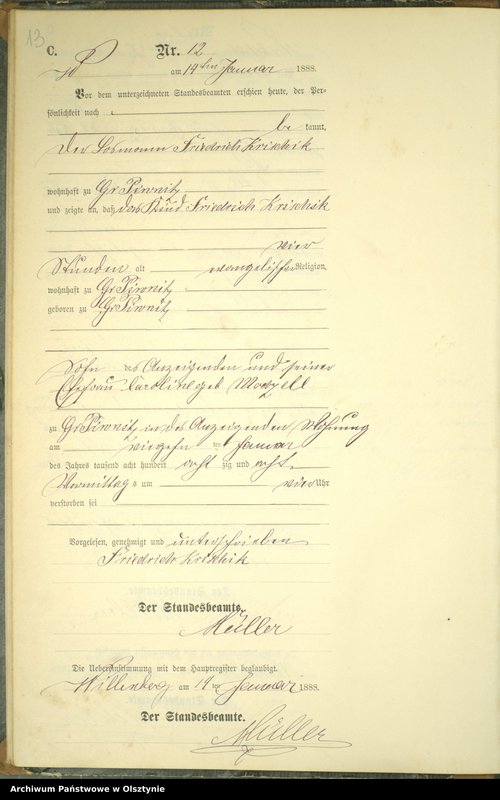 13
C.
Nr. 12
am 14ten Januar 1888.
Vor dem unterzeichneten Standesbeamten erschien heute, der Per-
sönlichkeit nach
be kannt,
Der Losmann Friedrich Krischik
wohnhaft zu Gr Piwnitz
und zeigte an, daß das Kind Friedrich Krischik
vier
Stunden alt evangelischer Religion,
wohnhaft zu Gr Piwnitz
geboren zu Gr Piwnitz
Sohn des Anzeigenden und seiner
Ehefrau Caroline geb
zu Gr Piwnitz in des Anzeigenden Wohnung
am vierzehn ten Januar
des Jahres tausend acht hundert acht zig und acht
Vormittag s um vier Uhr
verstorben sei
Vorgelesen, genehmigt und unterschrieben
Friedrich Krischik
Der Standesbeamte.
Müller
Die Uebereinstimmung mit dem Hauptregister beglaubigt.
Willenberg am 14 ten Januar 1888.
Der Standesbeamte.
Müller
Archiwum Państwowe w Olsztynie